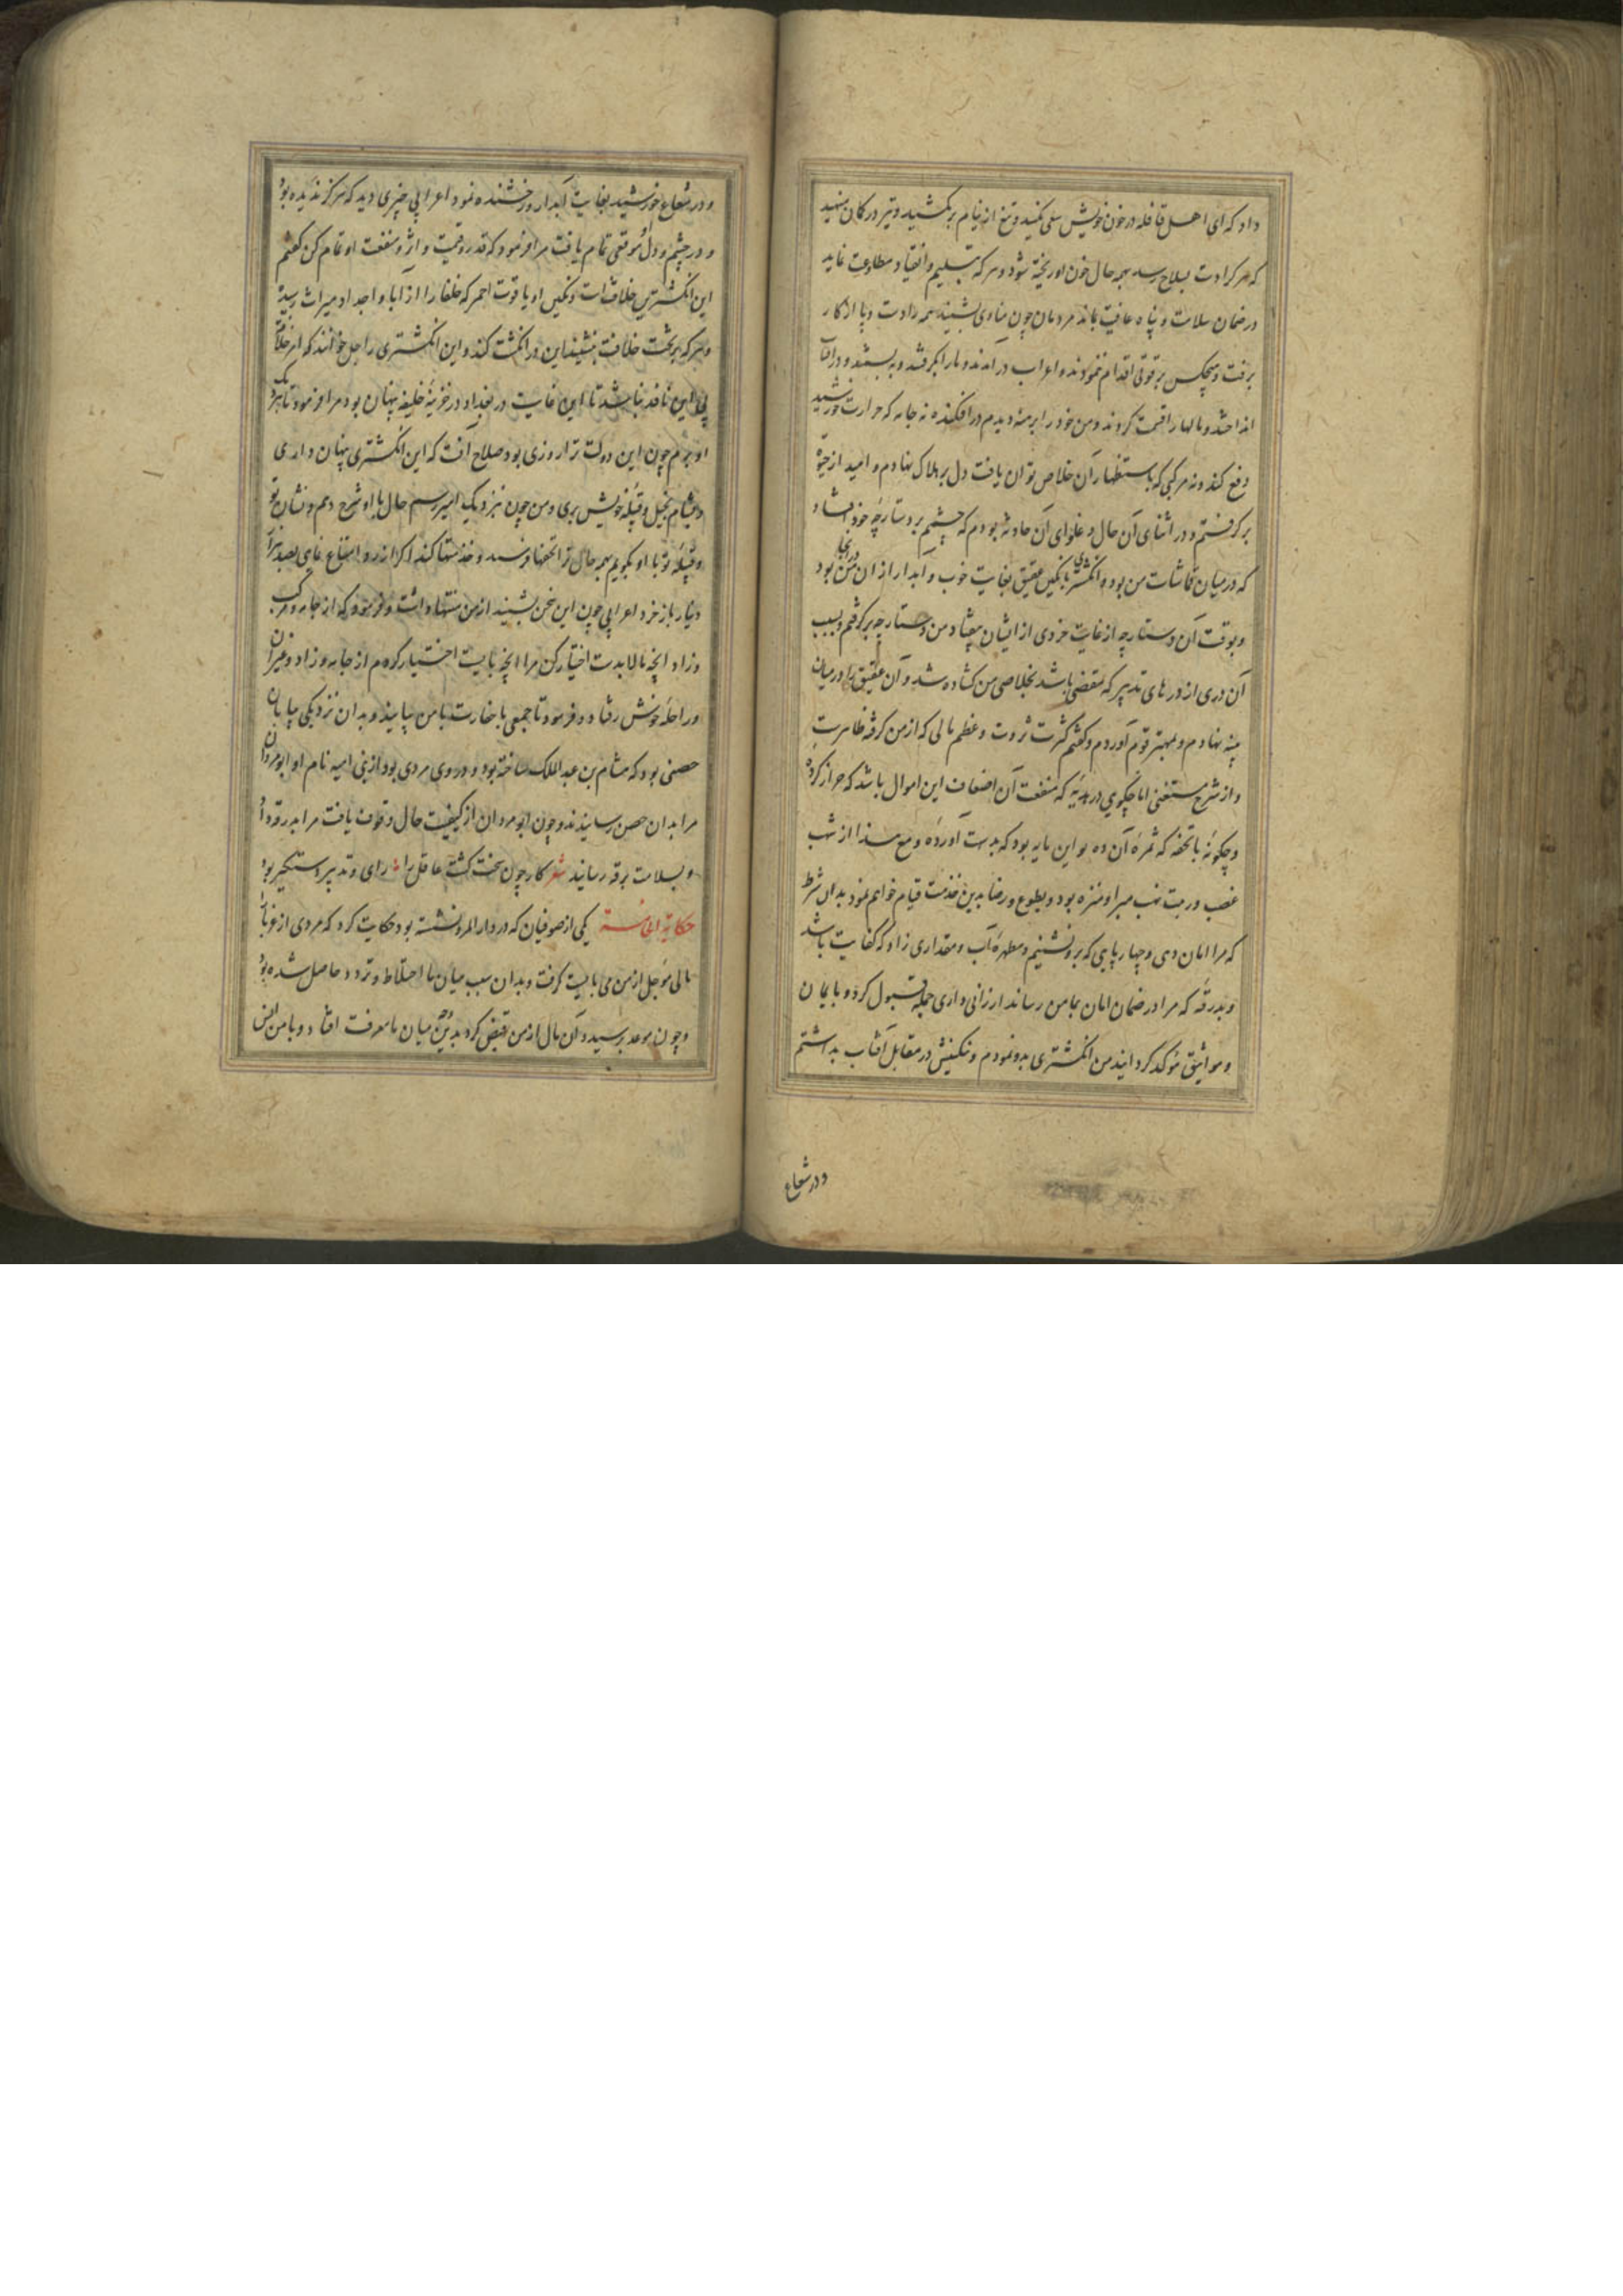 داد که ای اهل قافله در خون خویش سعی مکنید و تیغ از نیام برمکشید و تیر در کمان منهید
که هر کرا دست بسلاح رسد بهمه حال خون او ریخته شود و هر که تسلیم و انقیاد و مطاوعت نماید
در ضمان سلامت و پناه عافیت بماند مردمان چون منادی بشنیدند همه را دست و پا از کار
برفت و هیچکس بر قوتی اقدام ننمودند و اعراب درآمدند و ما را بگرفتند و ببستند و در آفتاب
انداختند و مالها را قسمت کردند و من خود را برهنه دیدم در افکنده نه جامه که حرارت خورشید
دفع کند و نه مرکبی که باستظهار آن خلاص توان یافت دل بر هلاک بنهادم و امید از حیوة
برگرفتم و در اثنای آن حال و غلوای آن حادثه بودم که چشمم بر دستارچه خود افتاد
که در میان قماشات من بود و انگشتری با نگین عقیق بغایت خوب و آبدار از ان من در آنجا بود
و بوقت آن دستارچه از غایت خردی از ایشان بیفتاد من دستارچه برگرفتم و بسبب
آن دری از درهای تدبیر که مقتضی باشد بخلاصی من گشاده شد و آن عقیق را در میان
پنبه نهادم و بمهتر قوم آوردم و گفتم کثرت ثروت و عظم مالی که از من گرفته ظاهرست
و از شرح مستغنی اما چگویی در هدیه که منفعت آن اضعاف این اموال باشد که حراز کرده
و چگونه با تحفه که ثمره آن ده بر این مایه بود که بدست آورده و مع هذا از شبهت
غصب و ریبت نهب مبرا و منزه بود و بطوع و رضا بدین خدمت قیام خواهم نمود بدان شرط
که مرا امان دهی و چهارپایی که برو نشینم و مطهره آب و مقداری زاد که کفایت باشد
و بدرقه که مرا در ضمان امان بمامن رساند ارزانی داری جمله قبول کرد و بایمان
و مواثیق مؤکد گردانید من انگشتری بدو نمودم و نگینش در مقابل آفتاب بداشتم
و در شعاع
و در شعاع خورشید بغایت آبدار و رخشنده نمود اعرابی چیزی دید که هرگز ندیده بود
و در چشم و دل موقعی تمام یافت مرا فرمود که قدر و قیمت و اثر و منفعت او تمام کن گفتم
این انگشترین خلافت است و نگین او یاقوت احمر که خلفا را از آبا و اجداد میراث رسیده
و هر که بر تخت خلافت بنشیند این در انگشت کند و این انگشتری را جبل خوانند که امر خلافت
بی این نافذ نباشد تا این غایت در بغداد در خزینه خلیفه پنهان بود مرا فرمود تا بنزدیک
او برم چون این دولت ترا روزی بود صلاح آنست که این انگشتری پنهان داری
و بشام بخیل و قبیله خویش بری و من چون نزدیک امیر رسم حال با او شرح دهم و نشان تو
و قبیله تو با او بگویم بهمه حال ترا تحفها فرستد و خدمتها کند اگر از رد امتناع نمایی بصد هزار
دینار بازخرد اعرابی چون این سخن بشنید از من منتها داشت و فرمود که از جامه و مرکب
و زاد آنچه مالابدست اختیار کن مرا آنچه بایست اختیار کردم از جامه و زاد و غیر آن
و راحله خوش رفتار و فرمود تا جمعی با خفارت با من بیایند و بدان نزدیکی بیابان
حصنی بود که هشام بن عبدالملک ساخته بود و در وی مردی بود از بنی امیه نام او ابو مروان
مرا بدان حصن رسانیدند و چون ابو مروان از کیفیت حال وقوف یافت مرا بدرقه داد
و بسلامت برقه رسانید شعر کار چون سخت گشت عاقل را رای و تدبیر دستگیر بود
حکایة الخامسة یکی از صوفیان که در دار المرو نشسته بود حکایت کرد که مردی از غربا
مالی مؤجل از من می بایست گرفت و بدان سبب میان ما اختلاط و تردد حاصل شده بود
و چون موعد برسید و آن مال از من قبض کرد بدین وجه میان ما معرفت افتاد و با من انس